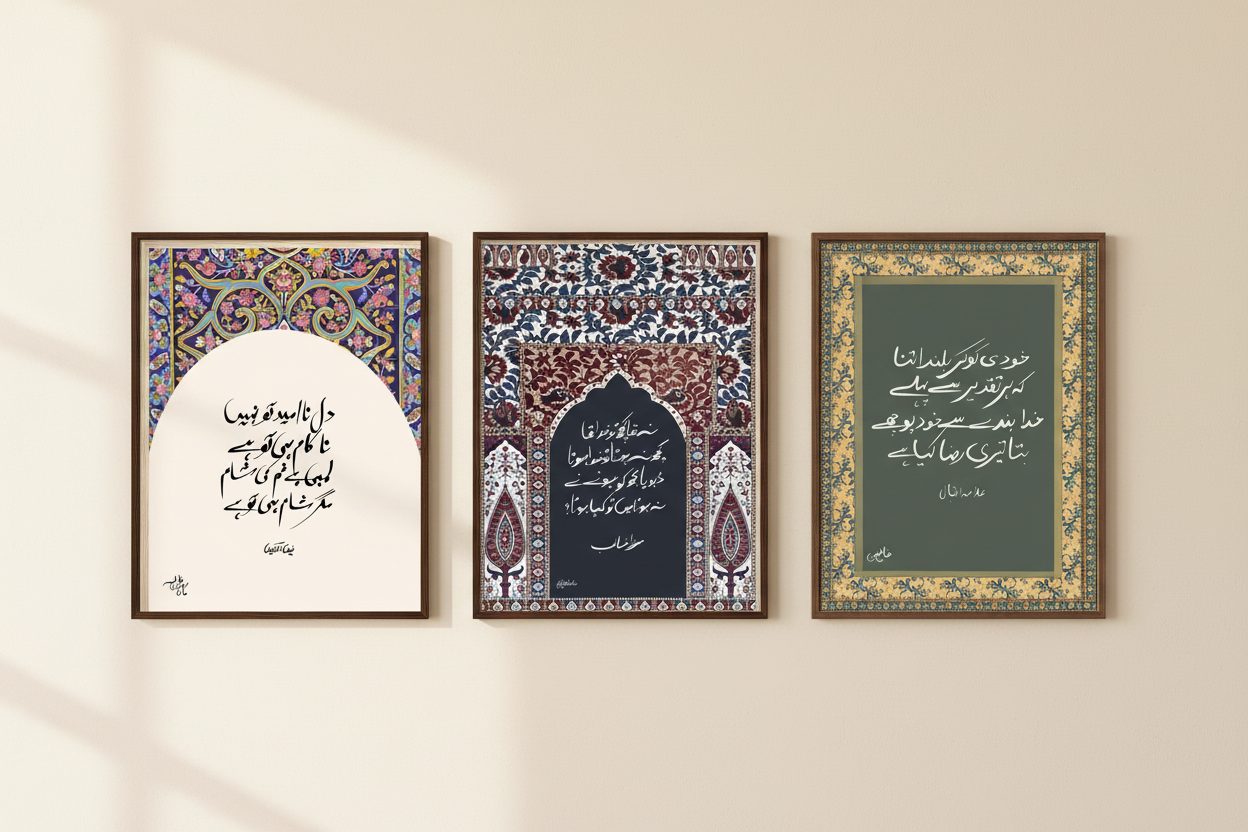 دل نا امید تو نہیں
نا کام ہی تو ہے
لمبی ہے غم کی شام
مگر شام ہی تو ہے
نہ تھا کچھ تو خدا تھا
کچھ نہ ہوتا تو خدا ہوتا
ڈبویا مجھ کو ہونے نے
نہ ہوتا میں تو کیا ہوتا؟
خودی کو کر بلند اتنا
کہ ہر تقدیر سے پہلے
خدا بندے سے خود پوچھے
بتا تیری رضا کیا ہے
علامہ اقبال